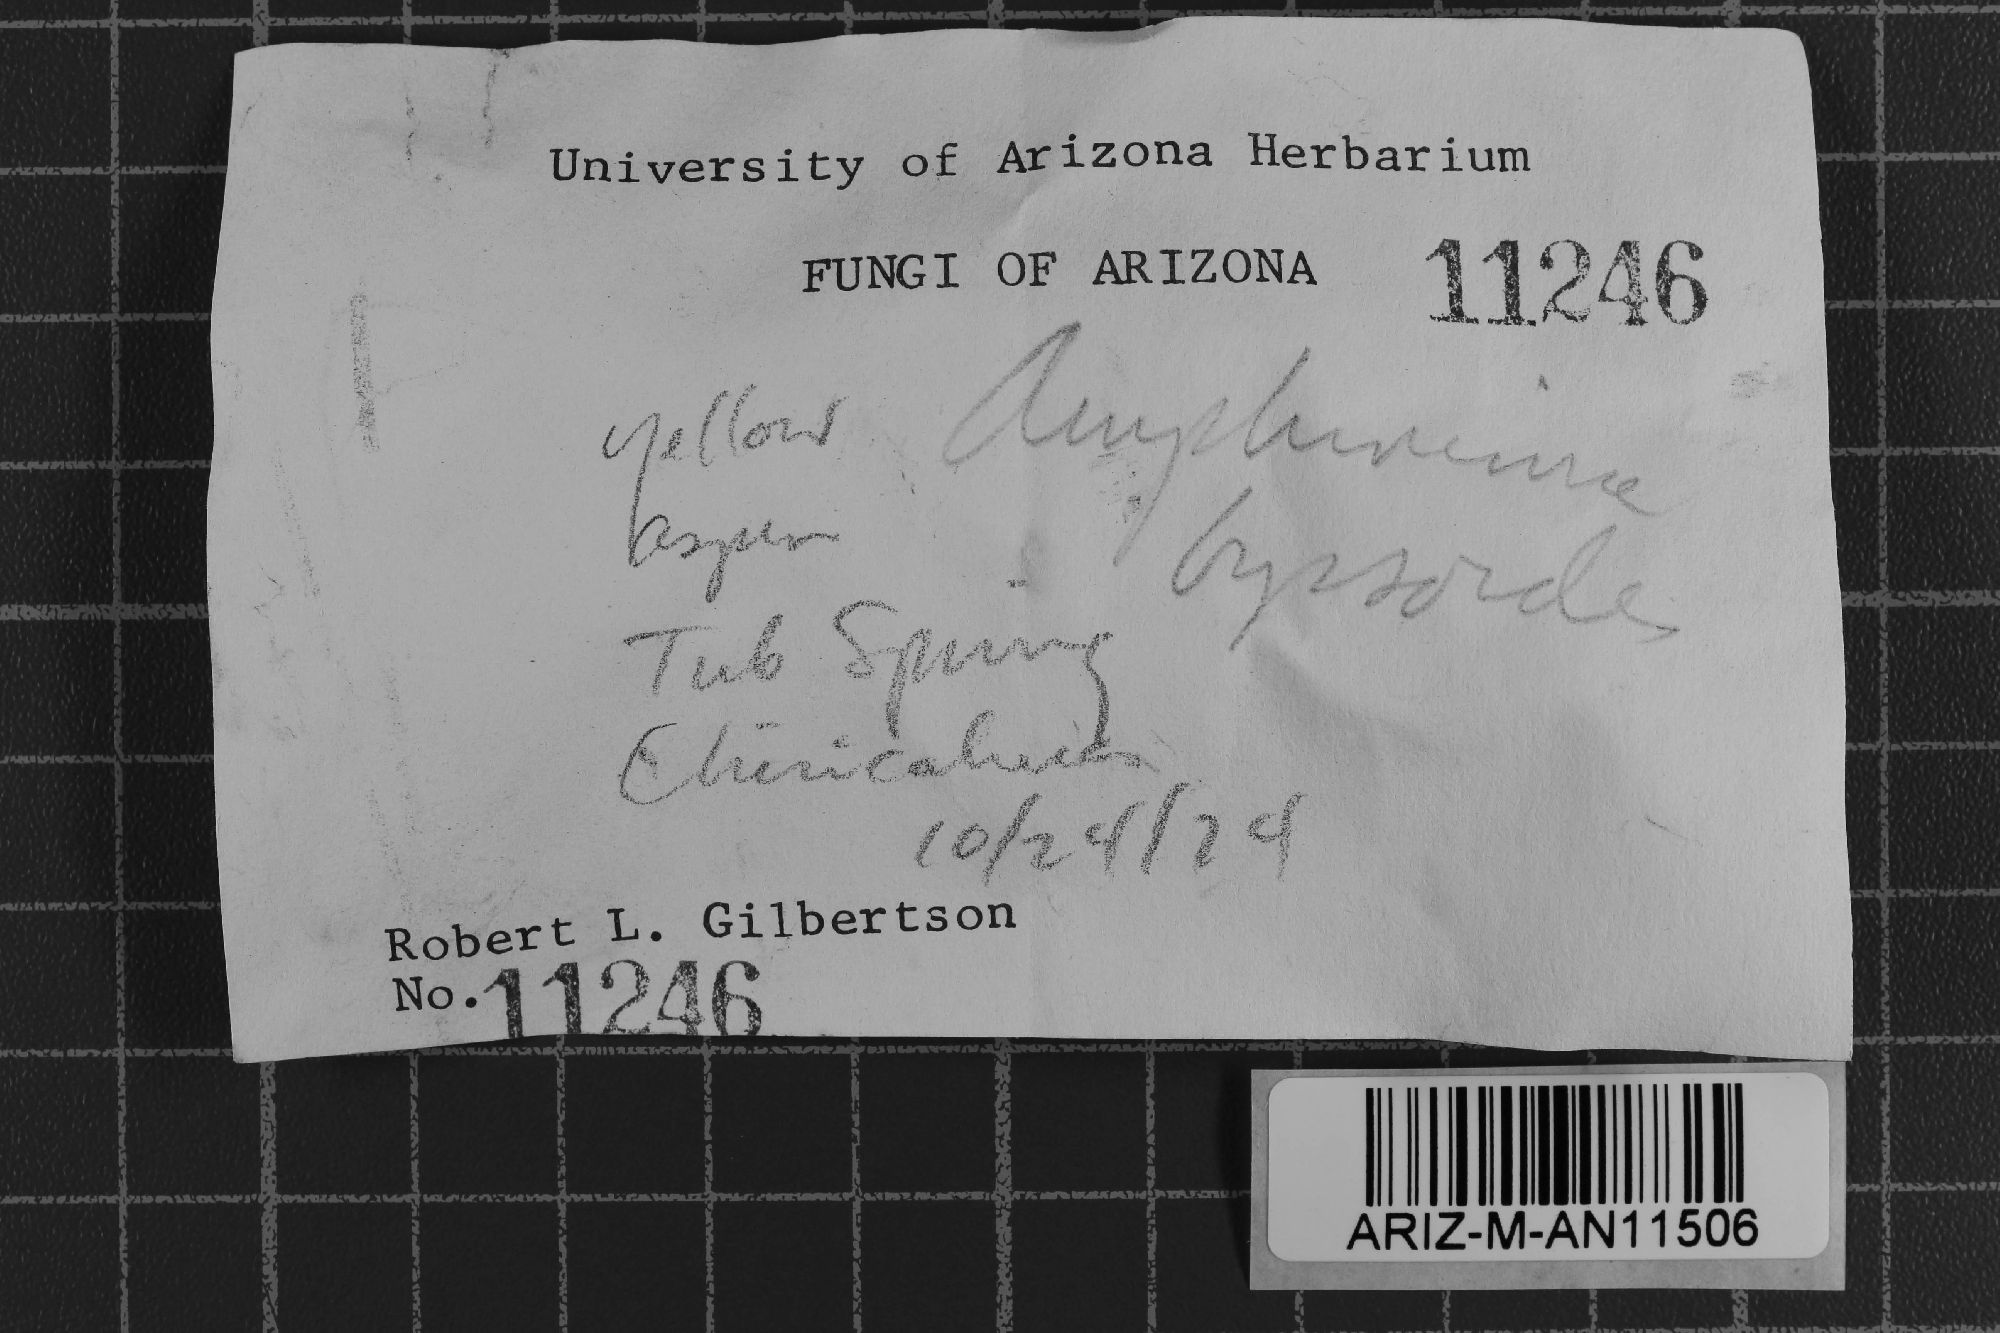 University of Arizona Herbarium
FUNGI OF ARIZONA 11246
yellow Amphinema
aspen byssoides
Tub Spring
Chiricahuas
10/24/74
Robert L. Gilbertson
No. 11246
ARIZ-M-AN11506